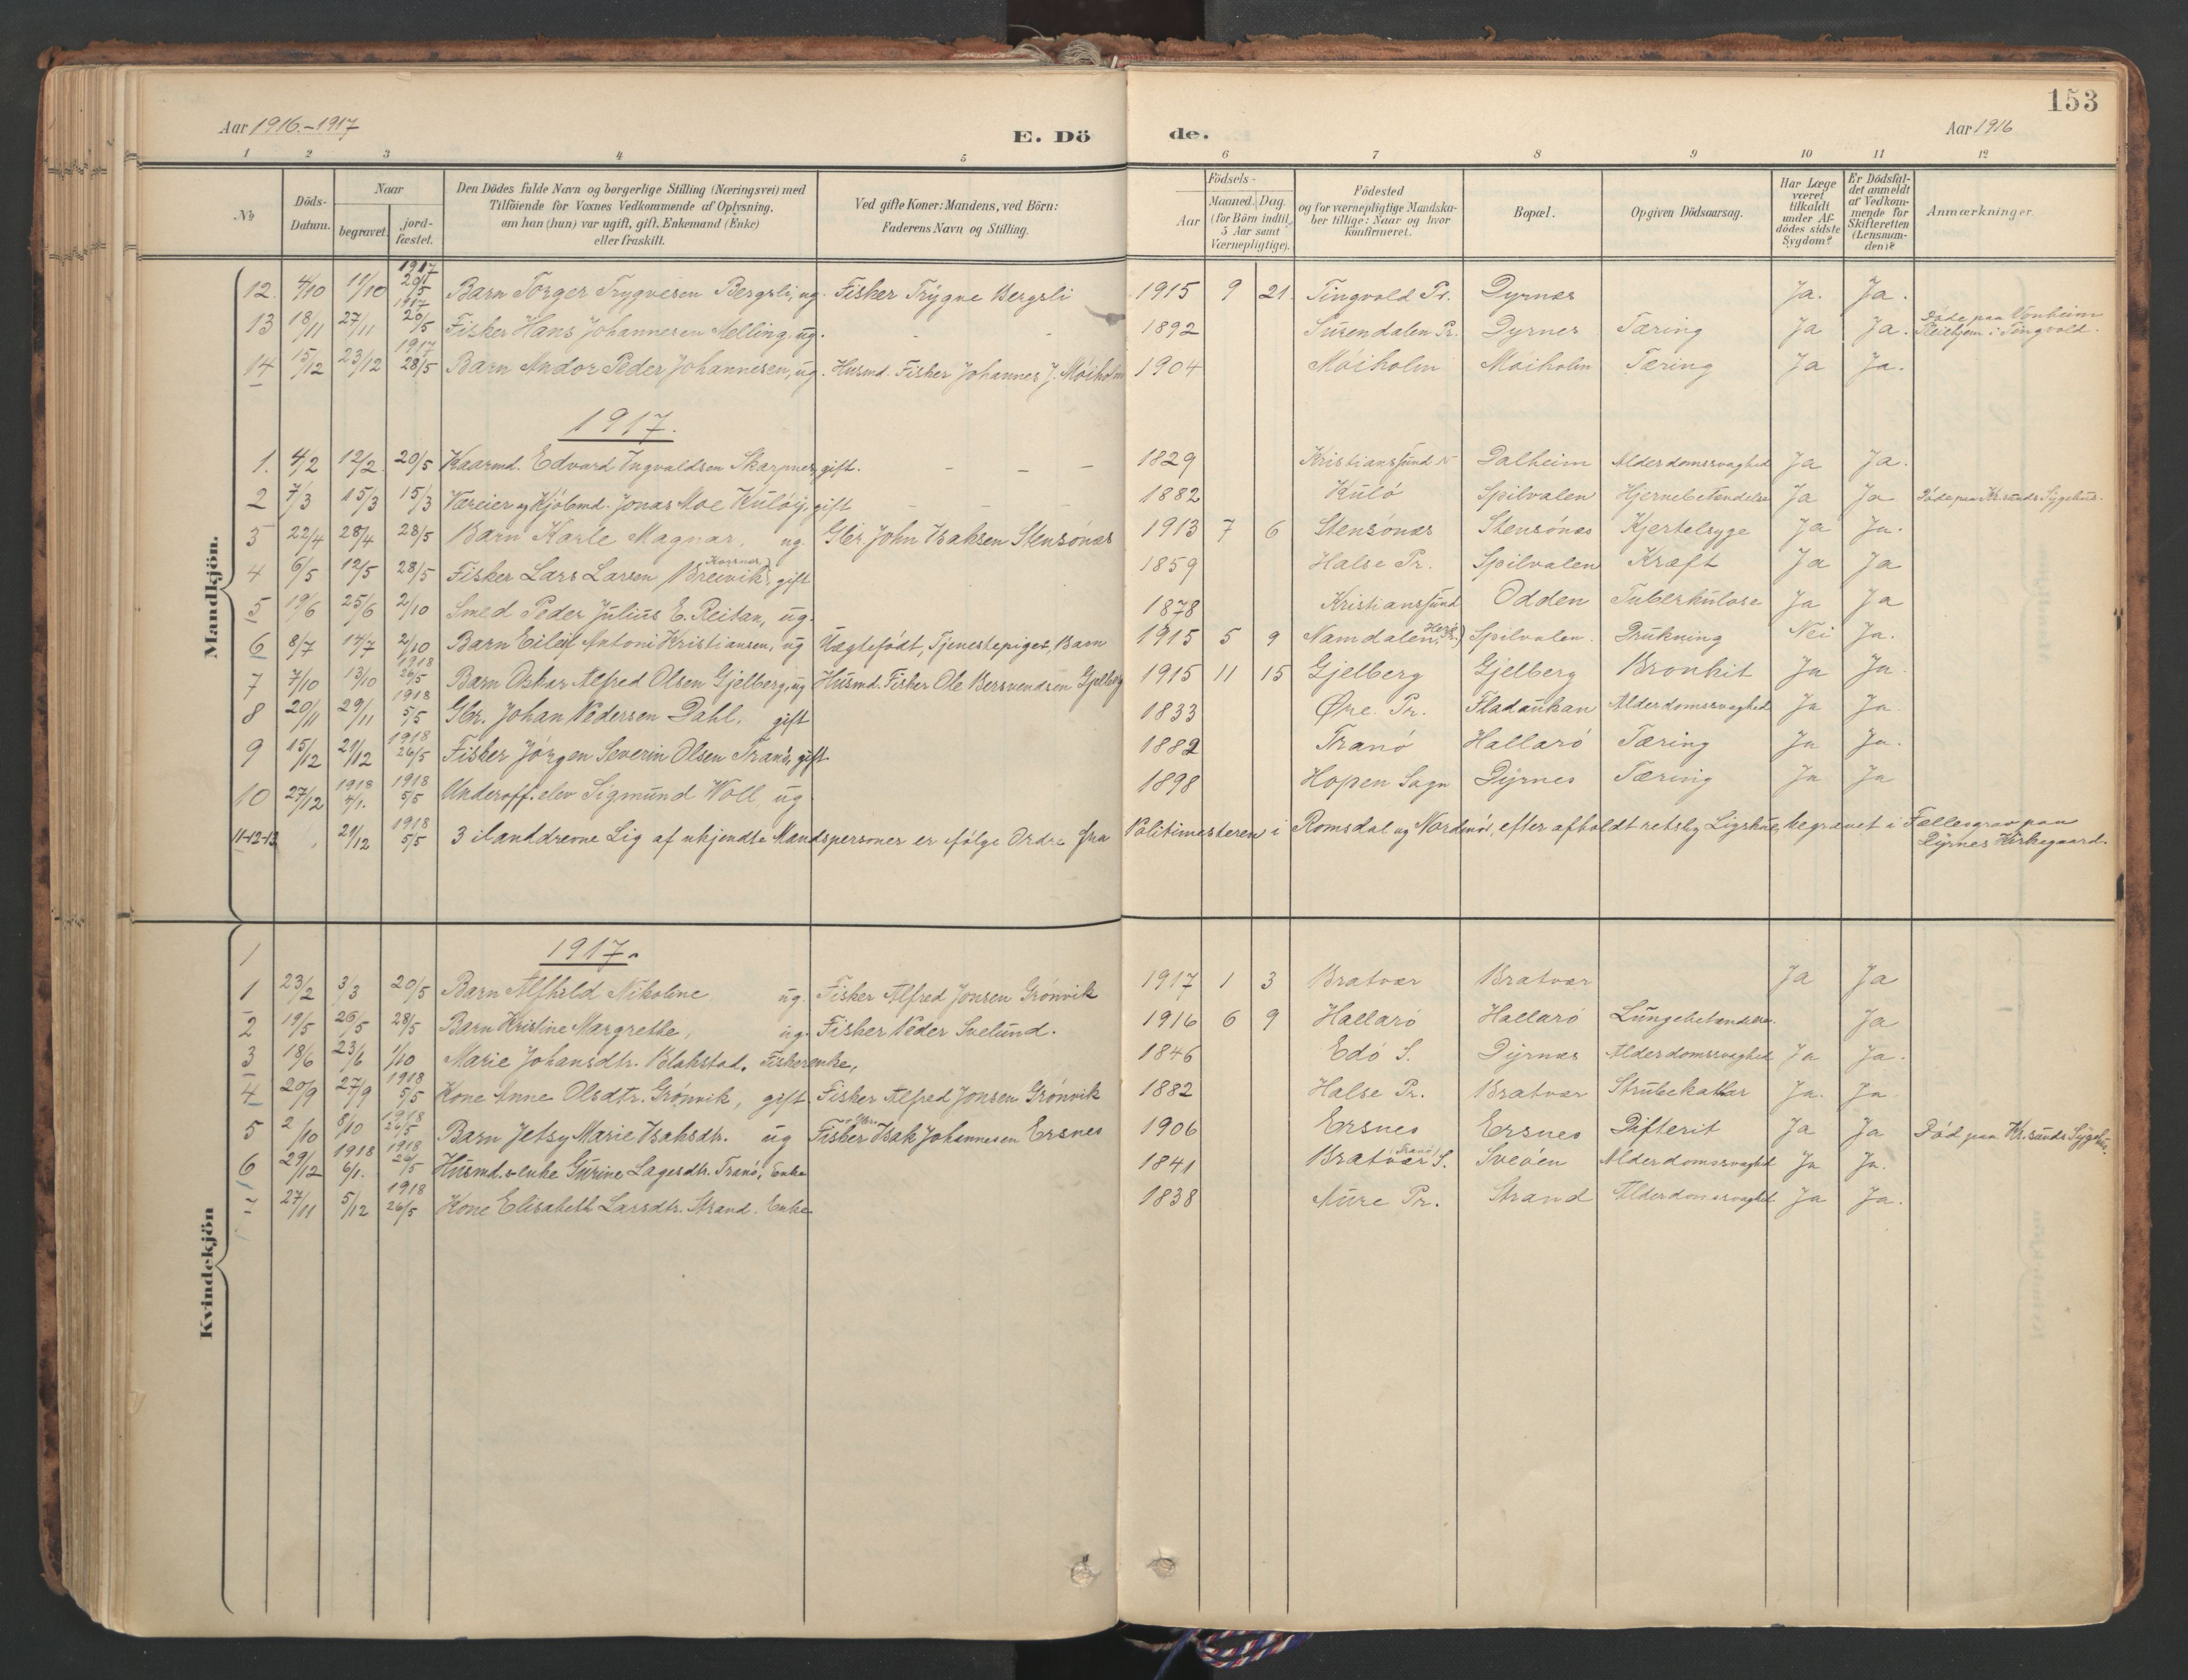 153
Aar 1916.-1917
E. Dö de.
Aar 1916
1 2 3 4 5 6 7 8 9 10 11 12
No
Döds-Datum.
Naar
begravet.
jord-fæstet.
Den Dödes fulde Navn og borgerlige Stilling (Næringsvei) med
Tilföiende for Voxnes Vedkommende af Oplysning,
om han (hun) var ugift, gift, Enkemand (Enke)
eller fraskilt.
Ved gifte Koner: Mandens, ved Börn:
Faderens Navn og Stilling.
Födsels-
Aar
Maaned. Dag.
(for Börn indtil
5 Aar samt
Værnepligtige).
Födested
og for værnepligtige Mandska-
ber tillige: Naar og hvor
konfirmeret.
Bopæl.
Opgiven Dödsaarsag.
Har Læge
været
tilkaldt
under Af-
dödes sidste
Sygdom?
Er Dödsfal-
det anmeldt
af Vedkom-
mende for
Skifteretten
(Lensman-
den)?
Anmærkninger.
Mandkjön.
12. 4/10 11/10 1917 20/5 Barn Torger Trygvesen Bergsli, ug. Fisker Trygve Bergsli 1915 9 21. Tingvold Pr. Dyrnes Ja. Ja.
13 18/11 27/11 1917 20/5 Fisker Hans Johannesen Melling, ug. 1892 Surendalen Pr. Dyrnes Tæring Ja Ja. Døde paa Vonheim
Pleiehjem i Tingvold.
14 15/12 23/12 1917 28/5 Barn Andor Peder Johannesen, ug. Husmd. Fisker Johannes J. Móiholm 1904 Móiholm Moiholm Tæring Ja Ja.
1917.
1. 4/2 12/2 20/5 Kaarmd. Edvard Ingvaldsen Skarpnes, gift. 1829 Kristianssund N Dalheim Alderdomssvaghed Ja Ja.
2 7/3 15/3 15/3 Væreier og Kjöbmd. Jonas Moe Kulóy, gift 1882 Kuló Spilvalen Hjernebetændelse Ja Ja Døde paa Kr.sunds Sygehus.
3 22/4 28/4 28/5 Barn Karle Magnar, ug. Gbr. John Isaksen Stensónes 1913 7 6 Stensónes Stensónes Kjertelsyge Ja Ja.
4 6/5 12/5 28/5 Fisker Lars Larsen Breivik, gift 1859 Halse Pr. Spilvalen Kræft Ja Ja
5 19/6 25/6 2/10 Smed Peder Julius E. Reitan, ug. 1878 Kristianssund Odden Tuberkulose Ja Ja
6 8/7 14/7 2/10 Barn Eilef Antoni Kristiansen, ug Uægtefödt, Tjenestepiges, Barn 1915 5 9 Namdalen Spilvalen. Drukning Nei Ja.
7 7/10 13/10 1918 26/5 Barn Oskar Alfred Olsen Gjelberg, ug Husmd. Fisker Ole Bersvendsen Gjelberg 1915 11 15 Gjelberg Gjelberg Bronkit Ja Ja.
8 20/11 29/11 1918 5/5 Gbr. Johan Pedersen Dahl, gift 1833 Øre. Pr. Fladaukan Alderdomssvaghed Ja Ja.
9 15/12 21/12 1918 26/5 Fisker Jórgen Severin Olsen Tranó, gift. 1882 Tranó Hallaró Tæring Ja Ja.
10 27/12 1918 4/1. 1918 5/5 Underoff. elev Sigmund Woll, ug 1898 Hopen Sogn Dyrnes Tæring Ja Ja
11-12-13 21/12 1918 5/5 3 ilanddrevne Lig af ukjendte Mandspersoner er ifólge Ordre fra Politimesteren i Romsdal og Nordmór, efter afholdt retslig Ligskue, begravet i Fællesgrav paa
Dyrnes Kirkegaard.
Kvindekjön
1
1917.
1 23/2 3/3 20/5 Barn Alfhild Nikoline ug. Fisker Alfred Jonsen Grónvik 1917 1 3 Bratvær Bratvær Ja Ja
2 19/5 26/5 28/5 Barn Kristine Margrethe, ug. Fisker Peder Svelund. 1916 6 9 Hallaró Hallaró Lungebetændelse. Ja
3 18/6 23/6 1/10 Marie Johansdtr. Blakstad. Fiskerenke, 1846 Edó S. Dyrnes Alderdomssvaghed Ja Ja.
4 20/9 27/9 1918 5/5 Kone Anne Olsdtr. Grónvik, gift Fisker Alfred Jonsen Grónvik 1882 Halse Pr. Bratvær Strubekatar Ja. Ja
5 2/10 8/10 1918 26/5 Barn Jetsy Marie Isaksdtr. ug Fisker Isak Johannesen Ersnes 1906 Ersnes Ersnes Difterit Ja Ja Död paa Kr.sunds Sygehus.
6 29/12 1918 6/1. 1918 26/5 Husmd.senke Gurine Lagesdtr. Tranó, Enke 1841 Bratvær S. Sveóen Alderdomssvaghed Ja Ja.
7 27/11 5/12 1918 26/5 Kone Elisabeth Larsdtr. Strand. Enke 1838 Aure Pr. Strand Alderdomssvaghed Ja Ja.